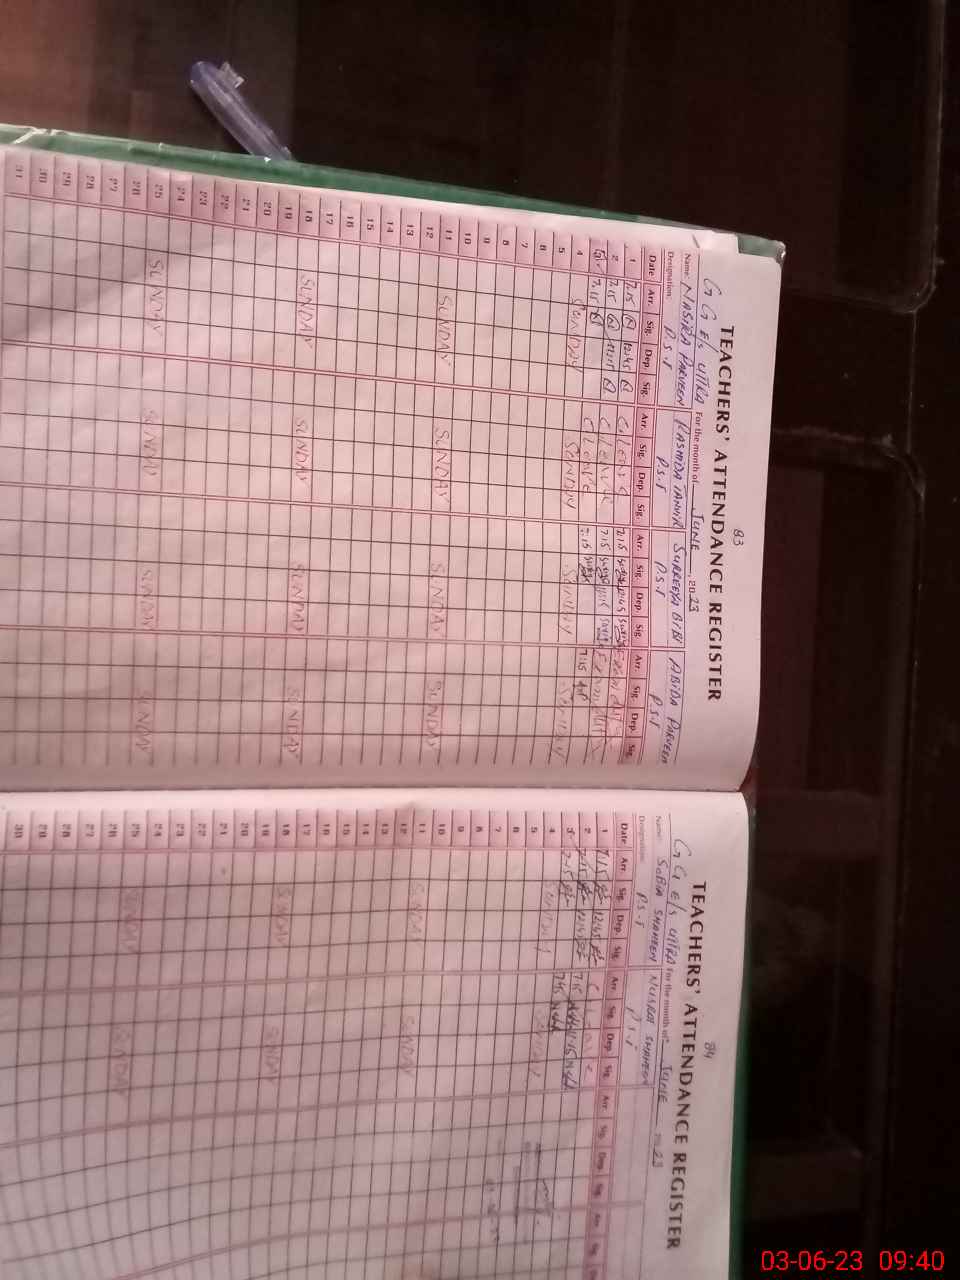 83
TEACHERS' ATTENDANCE REGISTER
G G E/S UTTRA For the month of JUNE, 2023
Name: NASIRA PARVEEN RASHIDA TANVIR SURREYA BIBI ABIDA PARVEEN
Designation: P.S.T P.S.T P.S.T P.S.T
Date Arr. Sig. Dep. Sig. Arr. Sig. Dep. Sig. Arr. Sig. Dep. Sig. Arr. Sig. Dep. Sig.
1 7.15 12.45 C Leave 7.15 12.45
2 7.15 11.15 C Leave 7.15 11.15
7.15 C Leave 7.15 7.15
4 SUNDAY SUNDAY SUNDAY SUNDAY
5
6
7
8
9
10
11 SUNDAY SUNDAY SUNDAY SUNDAY
12
13
14
15
16
17
18 SUNDAY SUNDAY SUNDAY SUNDAY
19
20
21
22
23
24
25 SUNDAY SUNDAY SUNDAY SUNDAY
26
27
28
29
30
31
84
TEACHERS' ATTENDANCE REGISTER
G G E/S UTTRA For the month of JUNE 2023
Name: SOBIA SHAHEEN NUSRAT SHAHEEN
Designation: P.S.T P.S.T
Date Arr. Sig. Dep. Sig. Arr. Sig. Dep. Sig. Arr. Sig. Dep. Sig. Arr. Sig.
1 7.15 12.45 C Leave
2 7.15 12.45 7.15 11.15
3 7.15 7.15
4 SUNDAY SUNDAY
5
6
7
8
9
10
11 SUNDAY SUNDAY
12
13
14
15
16
17
18 SUNDAY SUNDAY
19
20
21
22
23
24
25 SUNDAY SUNDAY
26
27
28
29
30
03-06-23 09:40